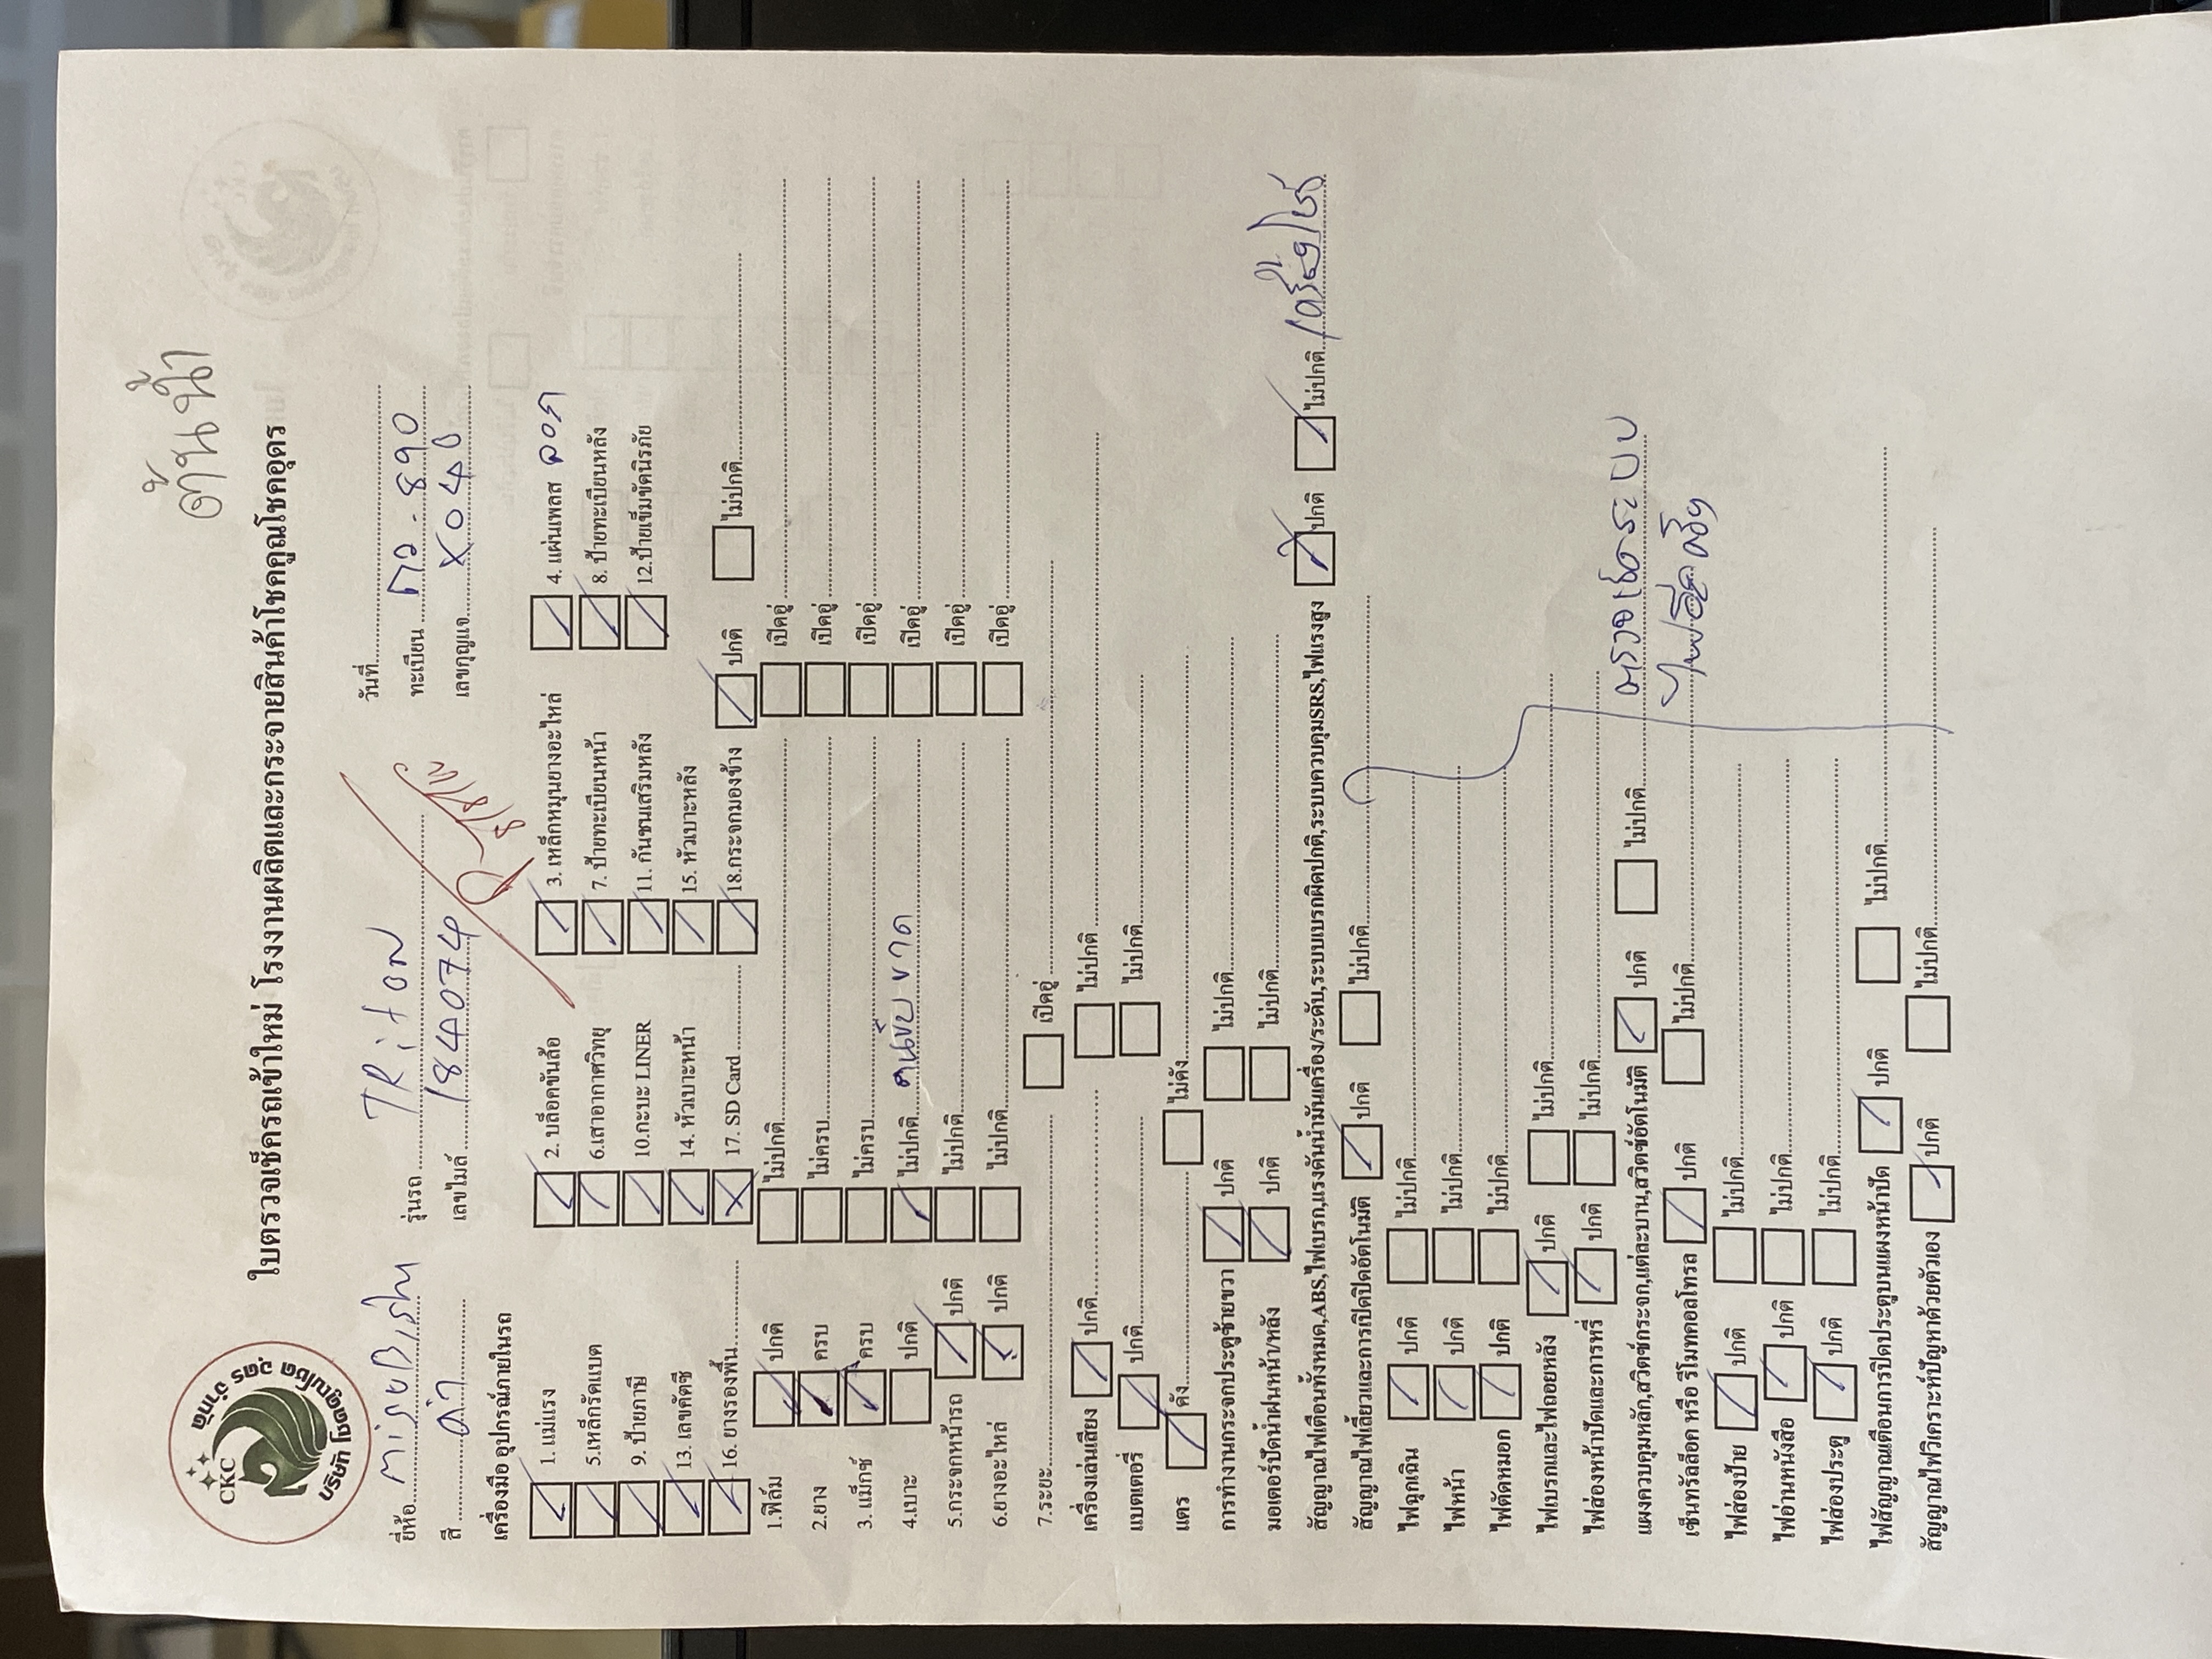 ด้านน้ำ
CKC
บริษัท โชคคูณโชค อุดร จำกัด
ใบตรวจเช็ครถเข้าใหม่ โรงงานผลิตและกระจายสินค้าโชคคูณโชคอุดร
ยี่ห้อ MiSUBiShi รุ่นรถ TRiton วันที่
สี ดำ เลขไมล์ 184074 ทะเบียน 890
เลขกุญแจ X040
เครื่องมือ อุปกรณ์ภายในรถ
1. แม่แรง 2. บล็อคขันล้อ 3. เหล็กหมุนยางอะไหล่ 4. แผ่นเพลส
5.เหล็กรัดแบต 6.เสาอากาศวิทยุ 7. ป้ายทะเบียนหน้า 8. ป้ายทะเบียนหลัง
9. ป้ายภาษี 10.กะบะ LINER 11. กันชนเสริมหลัง 12.ป้ายเข็มขัดนิรภัย
13. เลขคัตซี 14. หัวเบาะหน้า 15. หัวเบาะหลัง
16. ยางรองพื้น 17. SD Card 18.กระจกมองข้าง ปกติ ไม่ปกติ
1.ฟิล์ม ปกติ ไม่ปกติ เปิดอู่
2.ยาง ครบ ไม่ครบ เปิดอู่
3. แม็กซ์ ครบ ไม่ครบ เปิดอู่
4.เบาะ ปกติ ไม่ปกติ คนขับ ขาด เปิดอู่
5.กระจกหน้ารถ ปกติ ไม่ปกติ เปิดอู่
6.ยางอะไหล่ ปกติ ไม่ปกติ เปิดอู่
7.ระยะ เปิดอู่
เครื่องเล่นเสียง ปกติ ไม่ปกติ
แบตเตอรี่ ปกติ ไม่ปกติ
แตร ดัง ไม่ดัง
การทำงานกระจกประตูซ้ายขวา ปกติ ไม่ปกติ
มอเตอร์ปัดน้ำฝนหน้า/หลัง ปกติ ไม่ปกติ
สัญญาณไฟเตือนทั้งหมด,ABS,ไฟเบรก,แรงดันน้ำมันเครื่อง/ระดับ,ระบบเบรกผิดปกติ,ระบบควบคุมSRS,ไฟแรงสูง ปกติ ไม่ปกติ
สัญญาณไฟเลี้ยวและการเปิดปิดอัตโนมัติ ปกติ ไม่ปกติ
ไฟฉุกเฉิน ปกติ ไม่ปกติ
ไฟหน้า ปกติ ไม่ปกติ
ไฟตัดหมอก ปกติ ไม่ปกติ
ไฟเบรกและไฟถอยหลัง ปกติ ไม่ปกติ
ไฟส่องหน้าปัดและการหรี่ ปกติ ไม่ปกติ
แผงควบคุมหลัก,สวิตช์กระจก,แต่ละบาน,สวิตช์อัตโนมัติ ปกติ ไม่ปกติ ตรวจเช็คระบบ
เซ็นทรัลล็อค หรือ รีโมทคอลโทรล ปกติ ไม่ปกติ
ไฟส่องป้าย ปกติ ไม่ปกติ
ไฟอ่านหนังสือ ปกติ ไม่ปกติ
ไฟส่องประตู ปกติ ไม่ปกติ
ไฟสัญญาณเตือนการปิดประตูบนแผงหน้าปัด ปกติ ไม่ปกติ
สัญญาณไฟวิเคราะห์ปัญหาด้วยตัวเอง ปกติ ไม่ปกติ